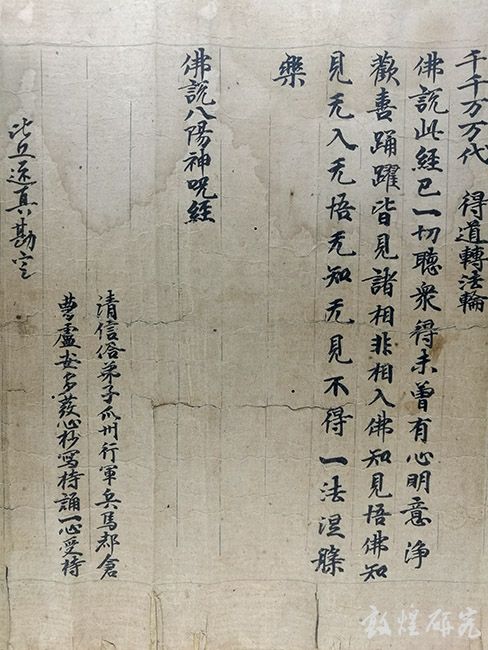 千千万万代　得道轉法輪
佛說此經已一切聽衆得未曾有心明意淨
歡喜踊躍皆見諸相非相入佛知見悟佛知
見无入无悟无知无見不得一法涅槃
樂
佛說八陽神呪經
清信俗弟子瓜州行軍兵馬都倉
曹盧安多發心抄寫持誦一心受持
比丘还真勘定
敦煌研究